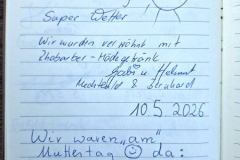 Super Wetter
Wir wurden verwöhnt mit
Rhabarber-Modegetränk
Gabi u. Helmut
Mechthild & Bernhard
10.5.2026
Wir waren „am"
Muttestag ☺ da: